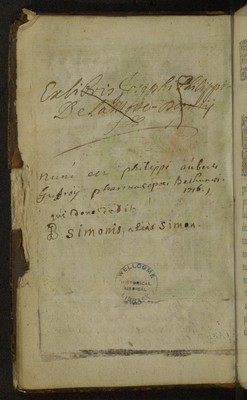 Ex libris Josephi Philippi
De la Motte
nunc est philippi auberti
Guffroy pharmacopæi Bethunensis
1716.
qui dono dedit
B simonis, alias Simon.
WELLCOME
HISTORICAL
MEDICAL
LIBRARY